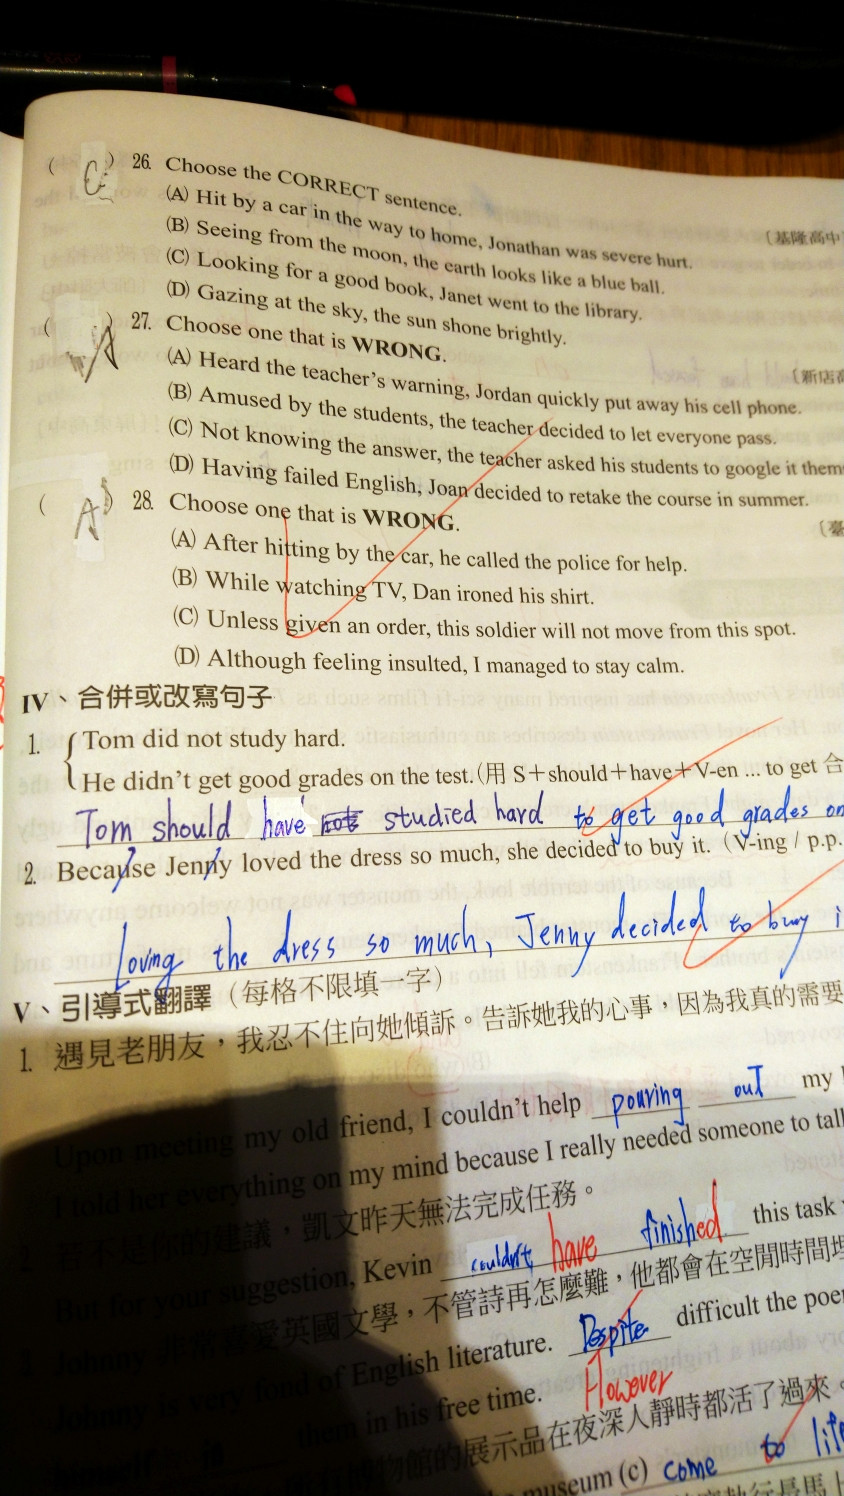 ( C ) 26. Choose the CORRECT sentence.
(A) Hit by a car in the way to home, Jonathan was severe hurt.
〔基隆高中
(B) Seeing from the moon, the earth looks like a blue ball.
(C) Looking for a good book, Janet went to the library.
(D) Gazing at the sky, the sun shone brightly.
( A ) 27. Choose one that is WRONG.
〔新店高
(A) Heard the teacher's warning, Jordan quickly put away his cell phone.
(B) Amused by the students, the teacher decided to let everyone pass.
(C) Not knowing the answer, the teacher asked his students to google it them
(D) Having failed English, Joan decided to retake the course in summer.
( A ) 28. Choose one that is WRONG.
〔臺
(A) After hitting by the car, he called the police for help.
(B) While watching TV, Dan ironed his shirt.
(C) Unless given an order, this soldier will not move from this spot.
(D) Although feeling insulted, I managed to stay calm.
IV、合併或改寫句子
1. Tom did not study hard.
He didn't get good grades on the test.(用 S+should+have+V-en ... to get 合
Tom should have studied hard to get good grades on
2. Because Jenny loved the dress so much, she decided to buy it.（V-ing / p.p.
Loving the dress so much, Jenny decided to buy i
V、引導式翻譯（每格不限填一字）
1. 遇見老朋友，我忍不住向她傾訴。告訴她我的心事，因為我真的需要
Upon meeting my old friend, I couldn't help pouring out my
I told her everything on my mind because I really needed someone to tal
若不是你的建議，凱文昨天無法完成任務。
But for your suggestion, Kevin couldn't have finished this task
Johnny 非常喜愛英國文學，不管詩再怎麼難，他都會在空閒時間埋
Johnny is very fond of English literature. Despite difficult the poe
However
himself in them in his free time.
博物館的展示品在夜深人靜時都活了過來。
museum (c) come to life